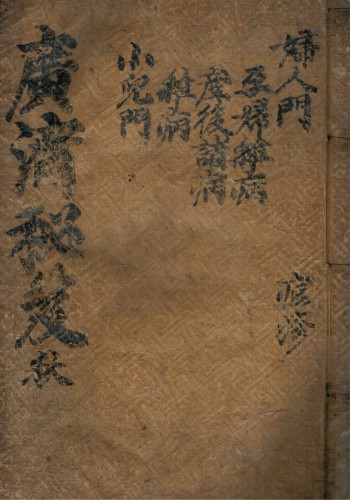 婦人門
孕婦雜病
疹
産後諸病
雜病
小兒門
廣濟秘芨 秋